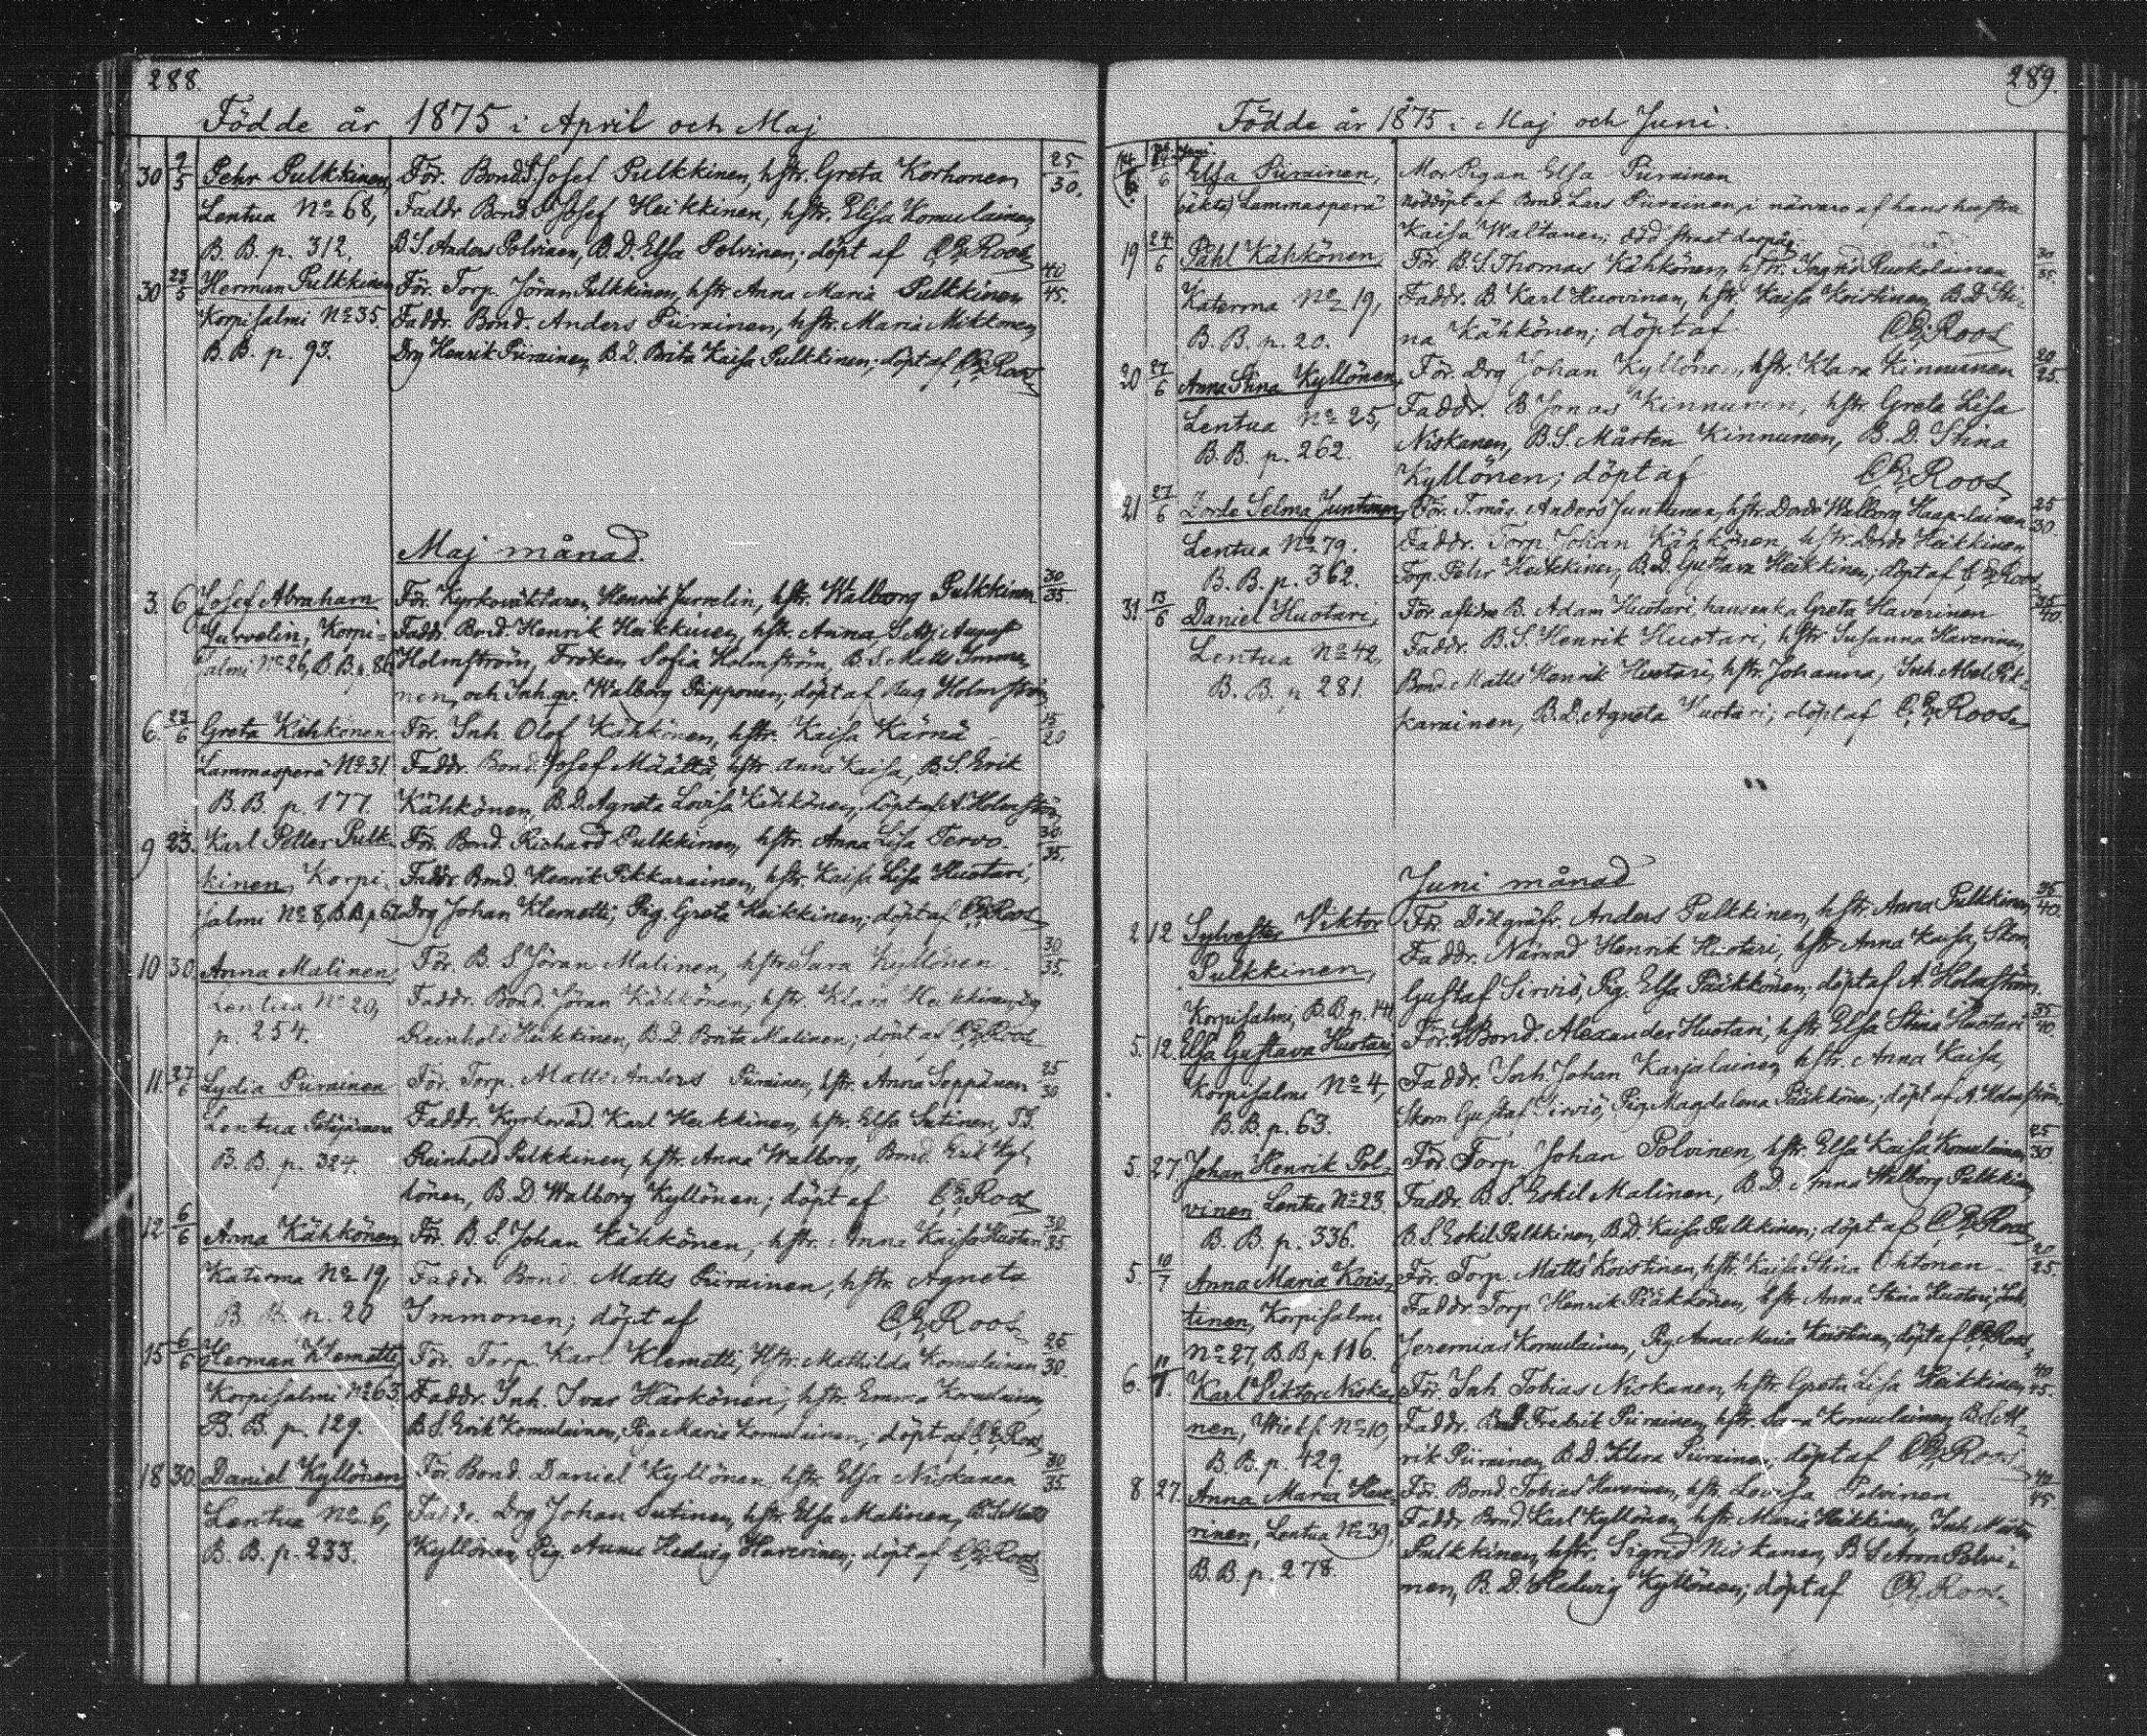 288.
Födde år 1875 i April och Maj
30 9/5 Pehr Pulkkinen, För. Bond.S. Josef Pulkkinen, hstr. Greta Korhonen 25/30.
Lentua No 68, Faddr. Bond.S Josef Heikkinen, hstr. Elisa Komulainen,
B. B. p. 312. B.S. Anders Polvinen, B.D. Elsa Polvinen; döpt af C.E. Roos
30 23/5 Herman Pulkkinen För. Torp. Jöran Pulkkinen, hstr Anna Maria Pulkkinen 40/45.
Korpisalmi No 35. Faddr. Bond. Anders Piirainen, hstr. Maria Mikkonen,
B. B. p. 93. Drg Henrik Piirainen, B.D. Brita Kaisa Pulkkinen; döpt af C.E. Roos
Maj månad.
3. 6 Josef Abraham För. Kyrkoväktaren Henrik Jurvelin, hstr. Walborg Pulkkinen 30/35
Jurvelin, Korpi= Faddr. Bond. Henrik Heikkinen, hstr. Anna, August
salmi No 26, B.B. p. 86 Holmström, Fröken Sofia Holmström, B.S. Matts Immo=
nen, och Inh.qv. Walborg Piipponen; döpt af Aug Holmström
6. 27/6 Greta Kähkönen För. Inh. Olof Kähkönen, hstr. Kaisa Kärnä 15/20
Lammasperä No 31. Faddr. Bond. Josef Määttä, hstr. Anna Kaisa, B.S. Erik
B.B. p. 177 Kähkönen, B.D. Agneta Lovisa Kähkönen; döpt af A. Holmström
9 23. Karl Petter Pulk= För. Bond. Richard Pulkkinen, hstr. Anna Lisa Tervo. 30/35.
kinen, Korpi= Faddr. Bond. Henrik Pikkarainen, hstr. Kaisa Lisa Huotari,
salmi No 8, B.B. p 67 Drg Johan Klemetti, Pig. Greta Heikkinen; döpt af C.E. Roos
10 30. Anna Malinen, För. B. S Jöran Malinen, hstr. Sara Kyllönen. 30/35.
Lentua No 20, Faddr. Bond. Jöran Kähkönen, hstr. Klara Heikkinen,
p. 254. Reinhold Heikkinen, B.D. Brita Malinen; döpt af C.E. Roos
11. 27/6 Lydia Piirainen För. Torp. Matts Anders Piirainen, hstr. Anna Seppänen 25/30
Lentua Faddr. Kyrkovärd. Karl Heikkinen, hstr. Elsa Sutinen, T.S.
B. B. p. 324. Reinhold Pulkkinen, hstr. Anna Walborg, Bond. Erik Kyl=
lönen, B.D Walborg Kyllönen; döpt af C.E. Roos
12 6/6 Anna Kähkönen, För. B. S. Johan Kähkönen, hstr. Anna Kaisa Huotari 30/35
Katerma No 19, Faddr. Bond. Matts Piirainen, hstr. Agneta
B. B. p. 20 Immonen; döpt af C.E. Roos
15 6/6 Herman Klemetti, För. Torp. Karl Klemetti, Hstr. Mathilda Komulainen 25/30.
Korpisalmi No 63. Faddr. Inh. Ivar Härkönen, hstr. Emma Komulainen,
B. B. p. 129. B.S. Erik Komulainen, Pig Maria Komulainen; döpt af C.E. Roos
18 30. Daniel Kyllönen För. Bond. Daniel Kyllönen, hstr. Elsa Niskanen 30/35.
Lentua No 6, Faddr. Drg Johan Sutinen, hstr. Elsa Malinen, B.S. Matts
B. B. p. 233. Kyllönen, Pig. Anna Hedvig Haverinen; döpt af C.E. Roos
289.
Födde år 1875 i Maj och Juni.
Elsa Piirainen, Mor Pigan Elsa Piirainen
(äkta) Lammasperä nöddöpt af Bond. Lars Piirainen, i närvaro af hans hustru
Kaisa Waltanen; död straxt derpå.
19 24/6 Påhl Kähkönen För. B.S. Thomas Kähkönen, hstr. Ingrid Ruokolainen 30/35.
Katerma No 19, Faddr. B. Karl Huovinen, hstr. Kaisa Koistinen, B.D. Sti=
B. B. p. 20. na Kähkönen; döpt af C.E. Roos
20 27/6 Anna Stina Kyllönen, För. Drg Johan Kyllönen, hstr. Klara Kinnunen 20/25.
Lentua No 25, Faddr. B Jonas Kinnunen, hstr. Greta Lisa
B. B. p. 262. Niskanen, B.S. Mårten Kinnunen, B.D. Stina
Kyllönen; döpt af C.E. Roos
21 27/6 Dorde Selma Juntunen, För. T.måg. Anders Juntunen, hstr. Dorde Walborg Haapalainen 25/30.
Lentua No 79. Faddr. Torp Johan Kähkönen, hstr. Dorde Heikkinen
B. B. p. 362. Torp. Pehr Heikkinen, B.D. Gustava Heikkinen; döpt af C.E. Roos
31. 13/6 Daniel Huotari, För. aflidne B. Adam Huotari, hans enka Greta Haverinen 35/40.
Lentua No 42, Faddr. B.S. Henrik Huotari, hstr Susanna Haverinen,
B. B. p 281. Bond. Matts Henrik Huotari, hstr. Johanna, Inh. Abel Pik=
karainen, B.D. Agneta Huotari; döpt af C.E. Roos
Juni månad
2 12 Sylvester Viktor För. Dökgräfv. Anders Pulkkinen, hstr Anna Pulkkinen 35/40.
Pulkkinen, Faddr. Nämnd Henrik Huotari, hstr Anna Kaisa, Skom.
Korpisalmi, B.B. p. 141 Gustaf Sirviö, Pig. Elsa Pääkkönen; döpt af A. Holmström.
5. 12. Elsa Gustava Huotari För. Bond. Alexander Huotari, hstr. Elsa Stina Huotari 35/40.
Korpisalmi No 4, Faddr. Inh Johan Karjalainen, hstr. Anna Kaisa,
B.B. p. 63. Skom Gustaf Sirviö, Pig. Magdalena Pääkkönen; döpt af A. Holmström.
5. 27. Johan Henrik Pol= För. Torp. Johan Polvinen, hstr. Elsa Kaisa Komulainen 25/30.
vinen Lentua No 23. Faddr. B.S. Eskil Malinen, B.D. Anna Walborg Pulkkinen,
B. B. p. 336. B.S. Eskil Pulkkinen, B.D. Kaisa Pulkkinen; döpt af C.E. Roos
5 10/7 Anna Maria Kois= För. Torp. Matts Koistinen, hstr. Kaisa Stina Ohtonen 20/25.
tinen, Korpisalmi Faddr. Torp Henrik Pääkkönen, hstr Anna Stina Huotari, Inh.
No 27, B.B p. 116. Jeremias Komulainen, Pig. Anna Maria Koistinen; döpt af C.E. Roos
6. Karl Viktor Niska= För. Inh. Tobias Niskanen, hstr. Greta Lisa Heikkinen 40/45.
nen, Wieks. No 10, Faddr. Bond. Fredrik Piirainen, hstr. Sara Komulainen,
B. B. p. 429. rik Piirainen, B.D. Klara Piirainen; döpt af C.E. Roos
8 27. Anna Maria Have= För. Bond Tobias Haverinen, hstr. Lovisa Polvinen 40/45
rinen, Lentua No 39, Faddr. Bond. Karl Kyllönen, hstr. Maria Heikkinen, Inh. Mårten
B. B. p. 278. Pulkkinen, hstr. Sigrid Niskanen, B.S. Aron Polvi=
nen, B.D. Hedwig Kyllönen; döpt af C.E. Roos.